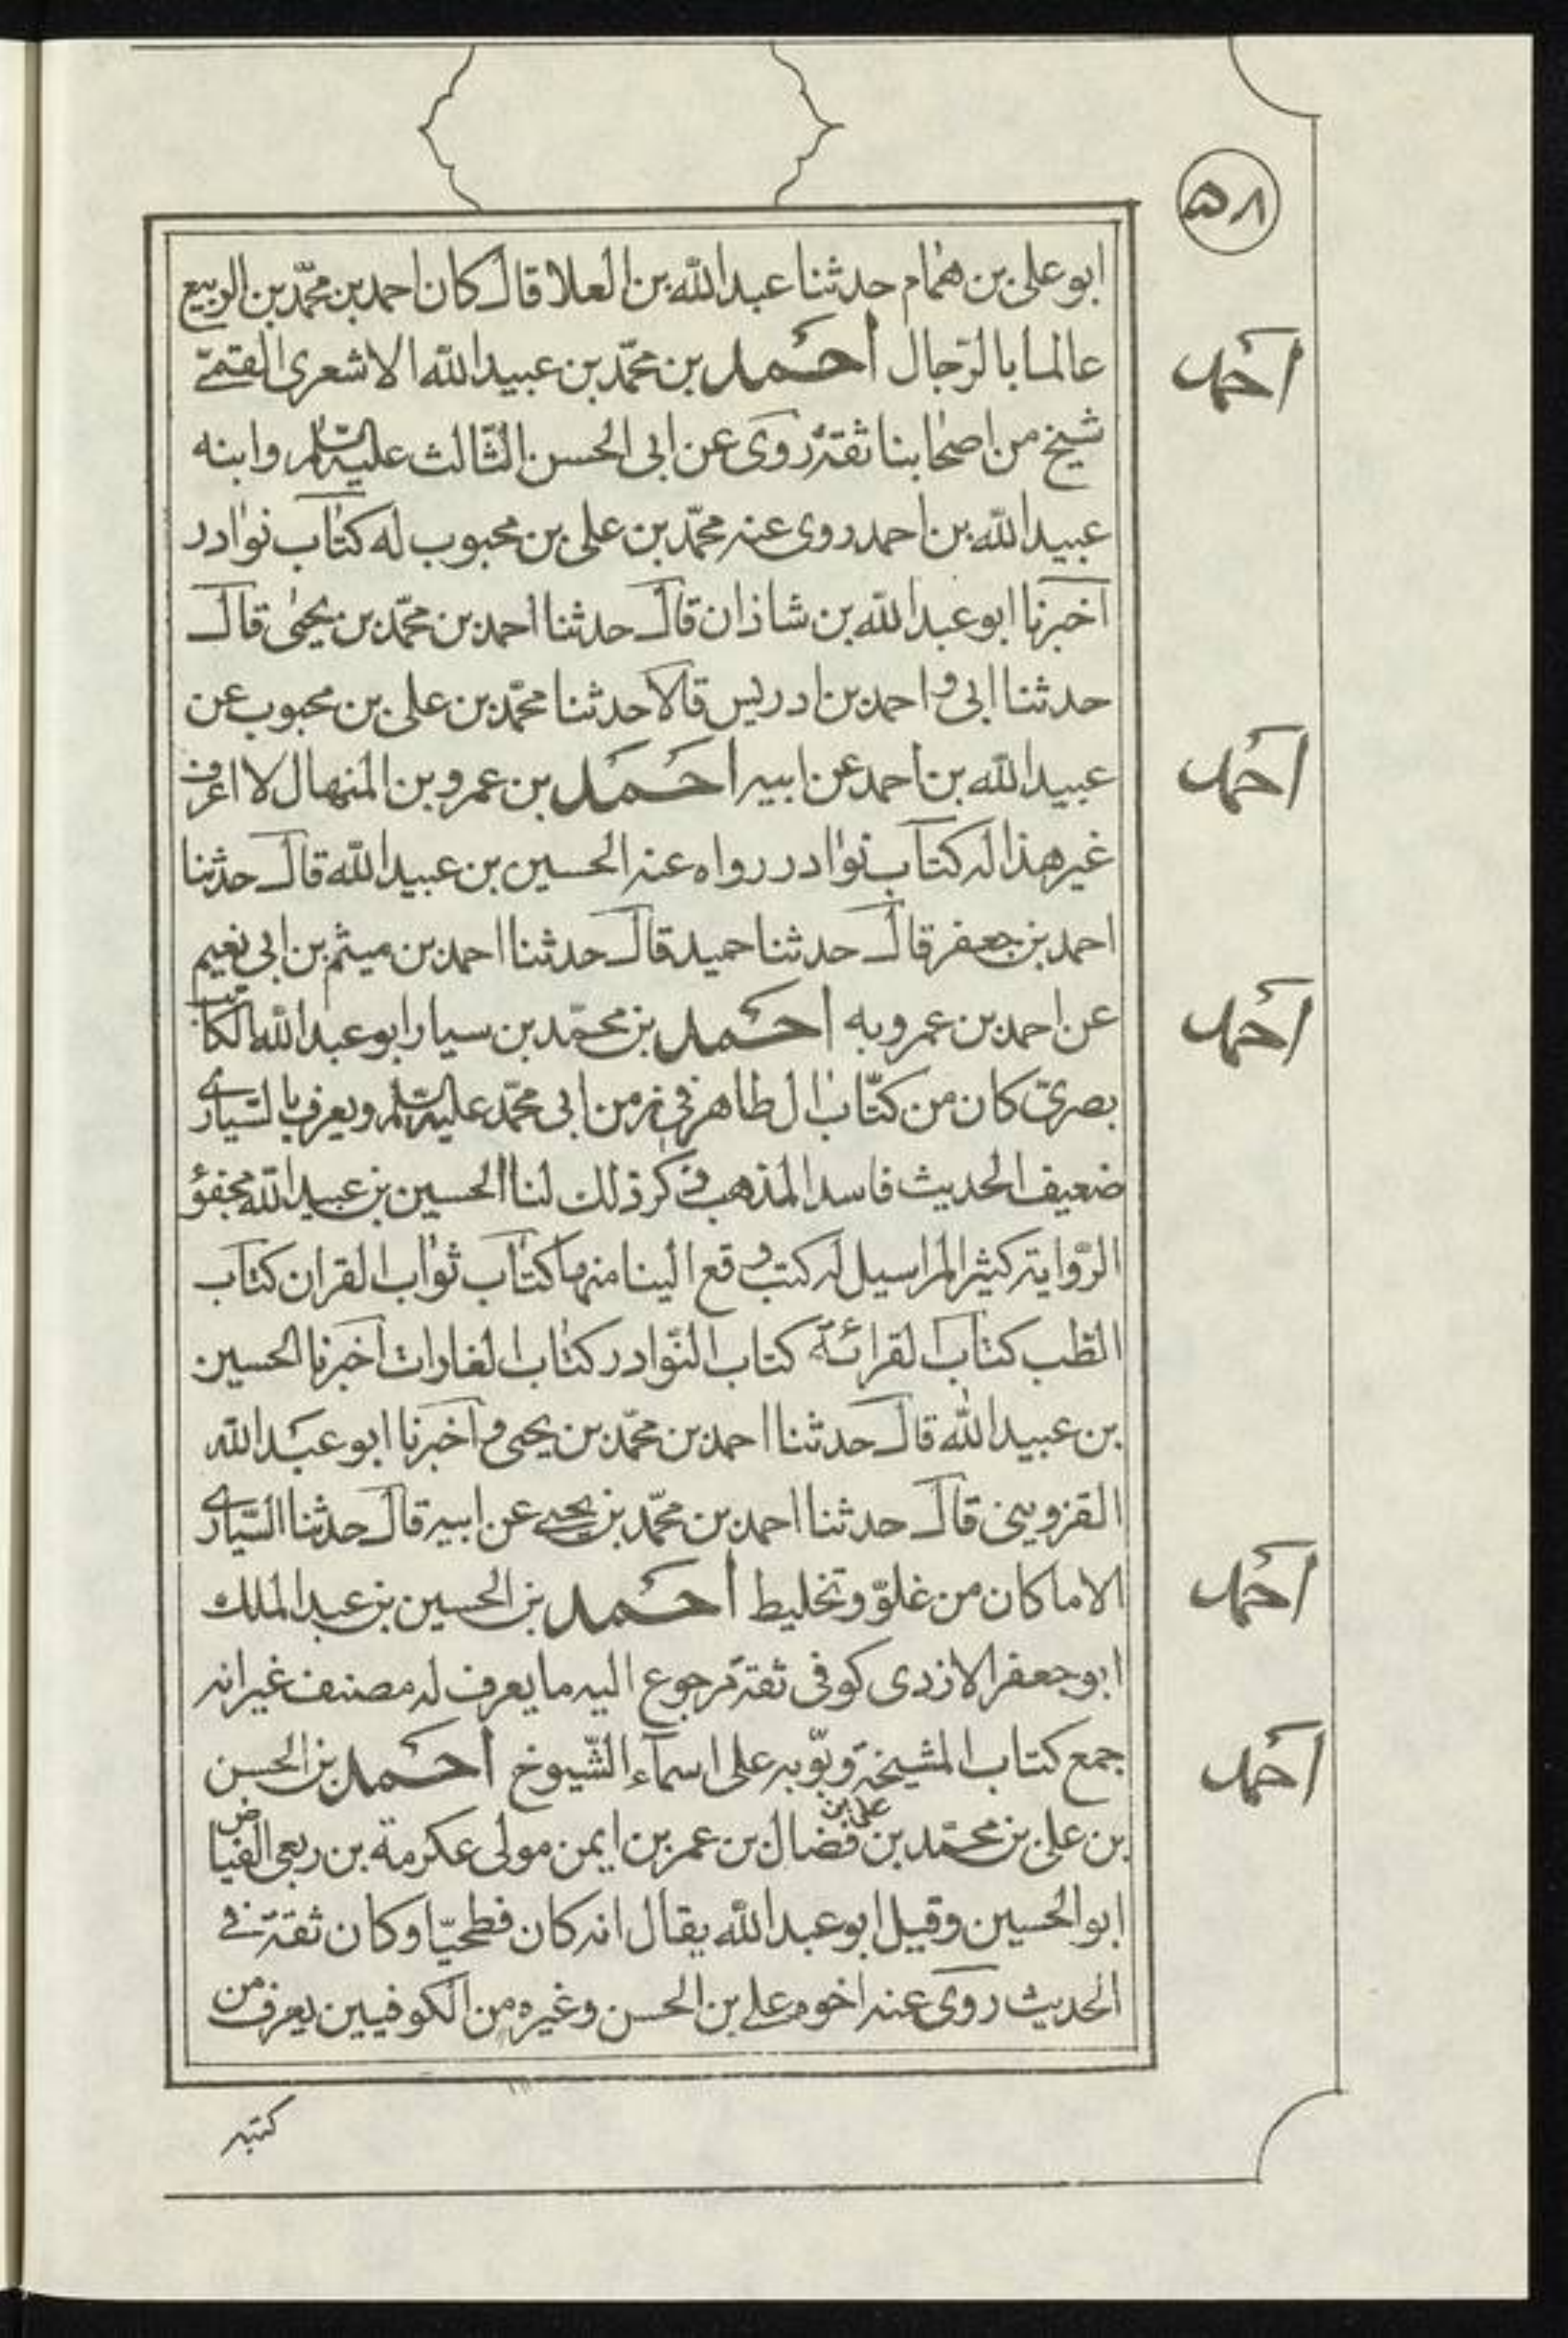 ٥٨
ابو على بن همام حدثنا عبدالله بن العلا قال كان احمد بن محمّد بن الربيع
عالما بالرّجال احمد بن محمّد بن عبيدالله الاشعرى القمّى
احمد
شيخ من اصحابنا ثقة روى عن ابى الحسن الثّالث عليه السّلم وابنه
عبيدالله بن احمد روى عنه محمّد بن على بن محبوب له كتاب نوادر
اخبرنا ابو عبدالله بن شاذان قال حدثنا احمد بن محمّد بن يحيى قال
حدثنا ابى و احمد بن ادريس قالا حدثنا محمّد بن على بن محبوب عن
عبيدالله بن احمد عن ابيه احمد بن عمرو بن المنهال لا اعرف
احمد
غير هذا له كتاب نوادر رواه عنه الحسين بن عبيدالله قال حدثنا
احمد بن جعفر قال حدثنا حميد قال حدثنا احمد بن ميثم بن ابى نعيم
عن احمد بن عمرو به احمد بن محمّد بن سيار ابو عبدالله الكاتب
احمد
بصرىّ كان من كتّاب ال طاهر فى زمن ابى محمّد عليه السّلم ويعرف بالسّيارى
ضعيف الحديث فاسد المذهب ذكر ذلك لنا الحسين بن عبيدالله مجفوّ
الرّواية كثير المراسيل له كتب وقع الينا منها كتاب ثواب القران كتاب
الطّب كتاب القرائة كتاب النّوادر كتاب الغارات اخبرنا الحسين
بن عبيدالله قال حدثنا احمد بن محمّد بن يحيى و اخبرنا ابو عبدالله
القزوينى قال حدثنا احمد بن محمّد بن يحيى عن ابيه قال حدثنا السّيارى
الا ما كان من غلوّ وتخليط احمد بن الحسين بن عبدالملك
احمد
ابو جعفر الازدى كوفى ثقة مرجوع اليه ما يعرف له مصنف غير انه
جمع كتاب المشيخة وبوّبه على اسمآء الشّيوخ احمد بن الحسن
احمد
بن على بن محمّد بن على بن فضال بن عمر بن ايمن مولى عكرمة بن ربعى الفياض
ابو الحسين وقيل ابو عبدالله يقال انه كان فطحيّا وكان ثقة فى
الحديث روى عنه اخوه على بن الحسن وغيره من الكوفيين يعرف من
كتبه